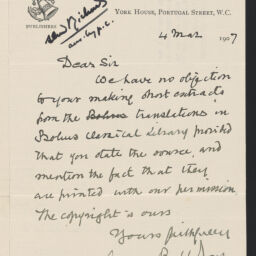 PUBLISHERS
YORK HOUSE, PORTUGAL STREET, W.C.
4 Mar 1907
Dear Sir
We have no objection
to your making short extracts
from the Bohns translations in
Bohns Classical Library provided
that you state the source, and
mention the fact that they
are printed with our permission
The copyright is ours
Yours faithfully